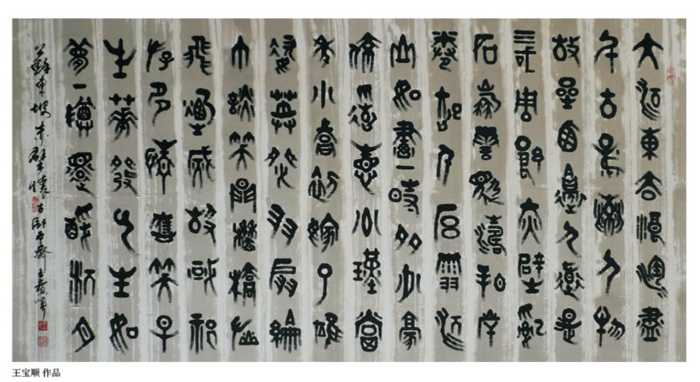 大江東去浪淘盡
千古風流人物
故壘西邊人道是
三國周郎赤壁亂
石崩雲驚濤拍岸
捲起千堆雪江
山如畫一時多少豪
傑遙想公瑾當
年小喬初嫁了雄
姿英發羽扇綸
巾談笑間檣櫓灰
飛煙滅故國神
游多情應笑早
生華髮人生如
夢一樽還酹江月
蘇東坡赤壁懷古
王宝顺 作品